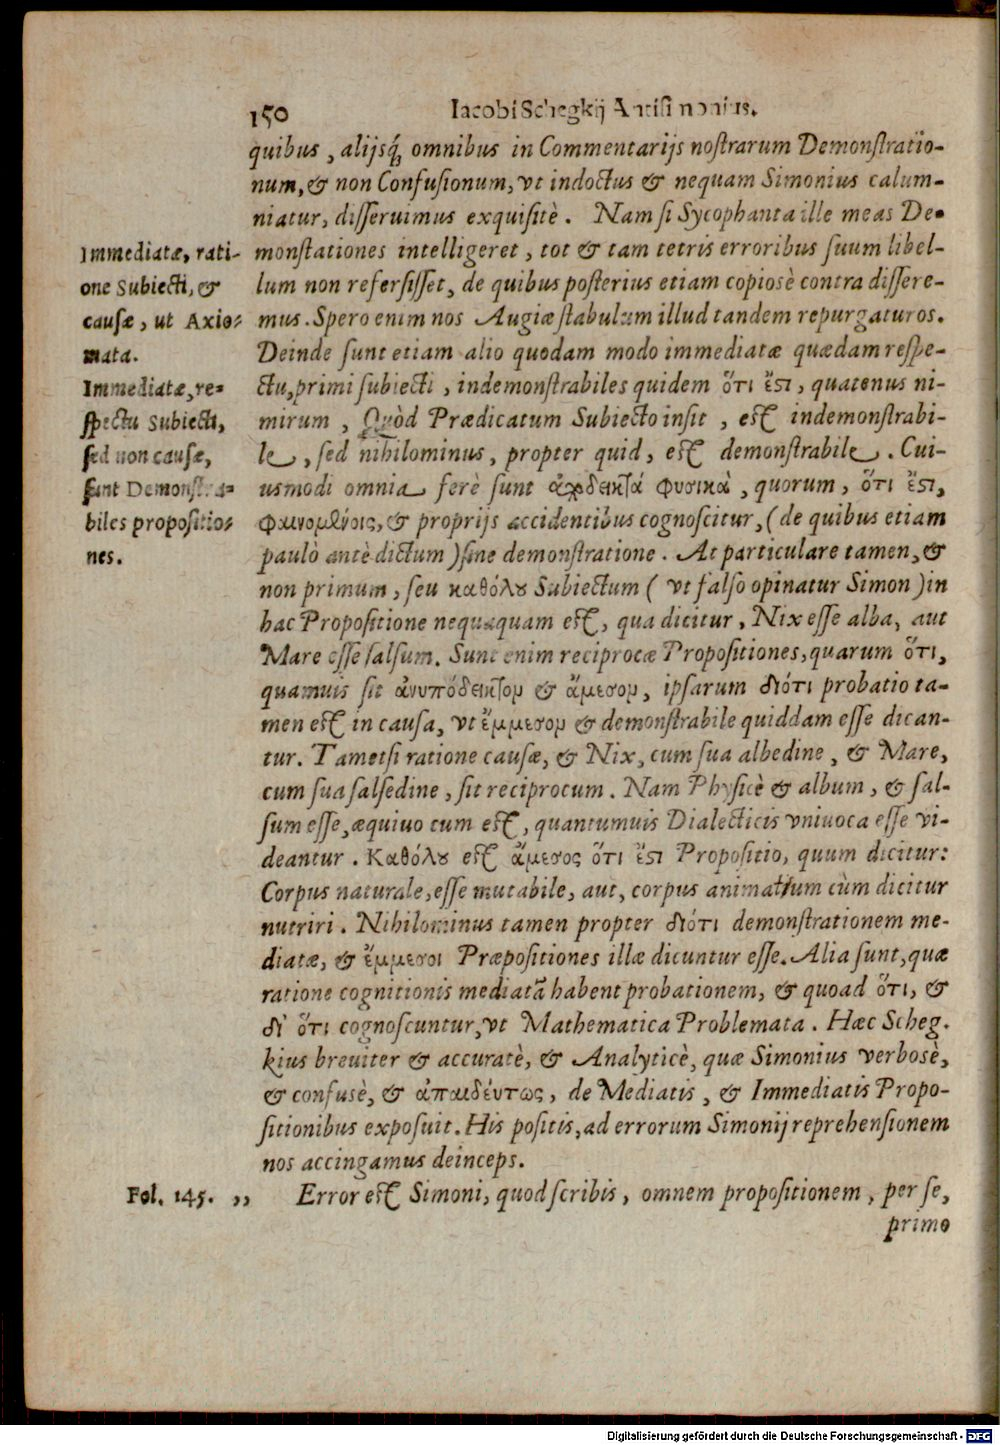 150 Iacobi Schegkij Antisimonius.
quibus, alijsq́; omnibus in Commentarijs nostrarum Demonstratio-
num, & non Confusionum, vt indoctus & nequam Simonius calum-
niatur, disseruimus exquisitè. Nam si Sycophanta ille meas De-
monstationes intelligeret, tot & tam tetris erroribus suum libel-
lum non refersisset, de quibus posterius etiam copiosè contra dissere-
mus. Spero enim nos Augiæ stabulum illud tandem repurgaturos.
Deinde sunt etiam alio quodam modo immediatæ quædam respe-
ctu, primi subiecti, indemonstrabiles quidem ὅτι ἔστι, quatenus ni-
mirum, Quòd Prædicatum Subiecto insit, est indemonstrabi-
le, sed nihilominus, propter quid, est demonstrabile. Cui-
usmodi omnia ferè sunt ἀποδεικτά φυσικὰ, quorum, ὅτι ἔστι,
φαινομένοις, & proprijs accidentibus cognoscitur, (de quibus etiam
paulò antè dictum) sine demonstratione. At particulare tamen, &
non primum, seu καθόλου Subiectum (vt falso opinatur Simon) in
hac Propositione nequaquam est, qua dicitur, Nix esse alba, aut
Mare esse salsum. Sunt enim reciprocæ Propositiones, quarum ὅτι,
quamuis sit ἀνυπόδεικτον & ἄμεσον, ipsarum διότι probatio ta-
men est in causa, vt ἔμμεσον & demonstrabile quiddam esse dican-
tur. Tametsi ratione causæ, & Nix, cum sua albedine, & Mare,
cum sua salsedine, sit reciprocum. Nam Physicè & album, & sal-
sum esse, æquiuocum est, quantumuis Dialecticis vniuoca esse vi-
deantur. Καθόλου est ἄμεσος ὅτι ἔστι Propositio, quum dicitur:
Corpus naturale, esse mutabile, aut, corpus animatum cùm dicitur
nutriri. Nihilominus tamen propter διότι demonstrationem me-
diatæ, & ἔμμεσοι Præpositiones illæ dicuntur esse. Alia sunt, quæ
ratione cognitionis mediatã habent probationem, & quoad ὅτι, &
δι' ὅτι cognoscuntur, vt Mathematica Problemata. Hæc Scheg.
kius breuiter & accuratè, & Analyticè, quæ Simonius verbosè,
& confusè, & ἀπαιδεύτως, de Mediatis, & Immediatis Propo-
sitionibus exposuit. His positis, ad errorum Simonij reprehensionem
nos accingamus deinceps.
Error est Simoni, quod scribis, omnem propositionem, per se,
primo
Immediatæ, rati-
one Subiecti, &
causæ, ut Axio-
mata.
Immediatæ, re-
spectu Subiecti,
sed non causæ,
sunt Demonstra-
biles propositio-
nes.
Fol. 145. „
Digitalisierung gefördert durch die Deutsche Forschungsgemeinschaft - DFG